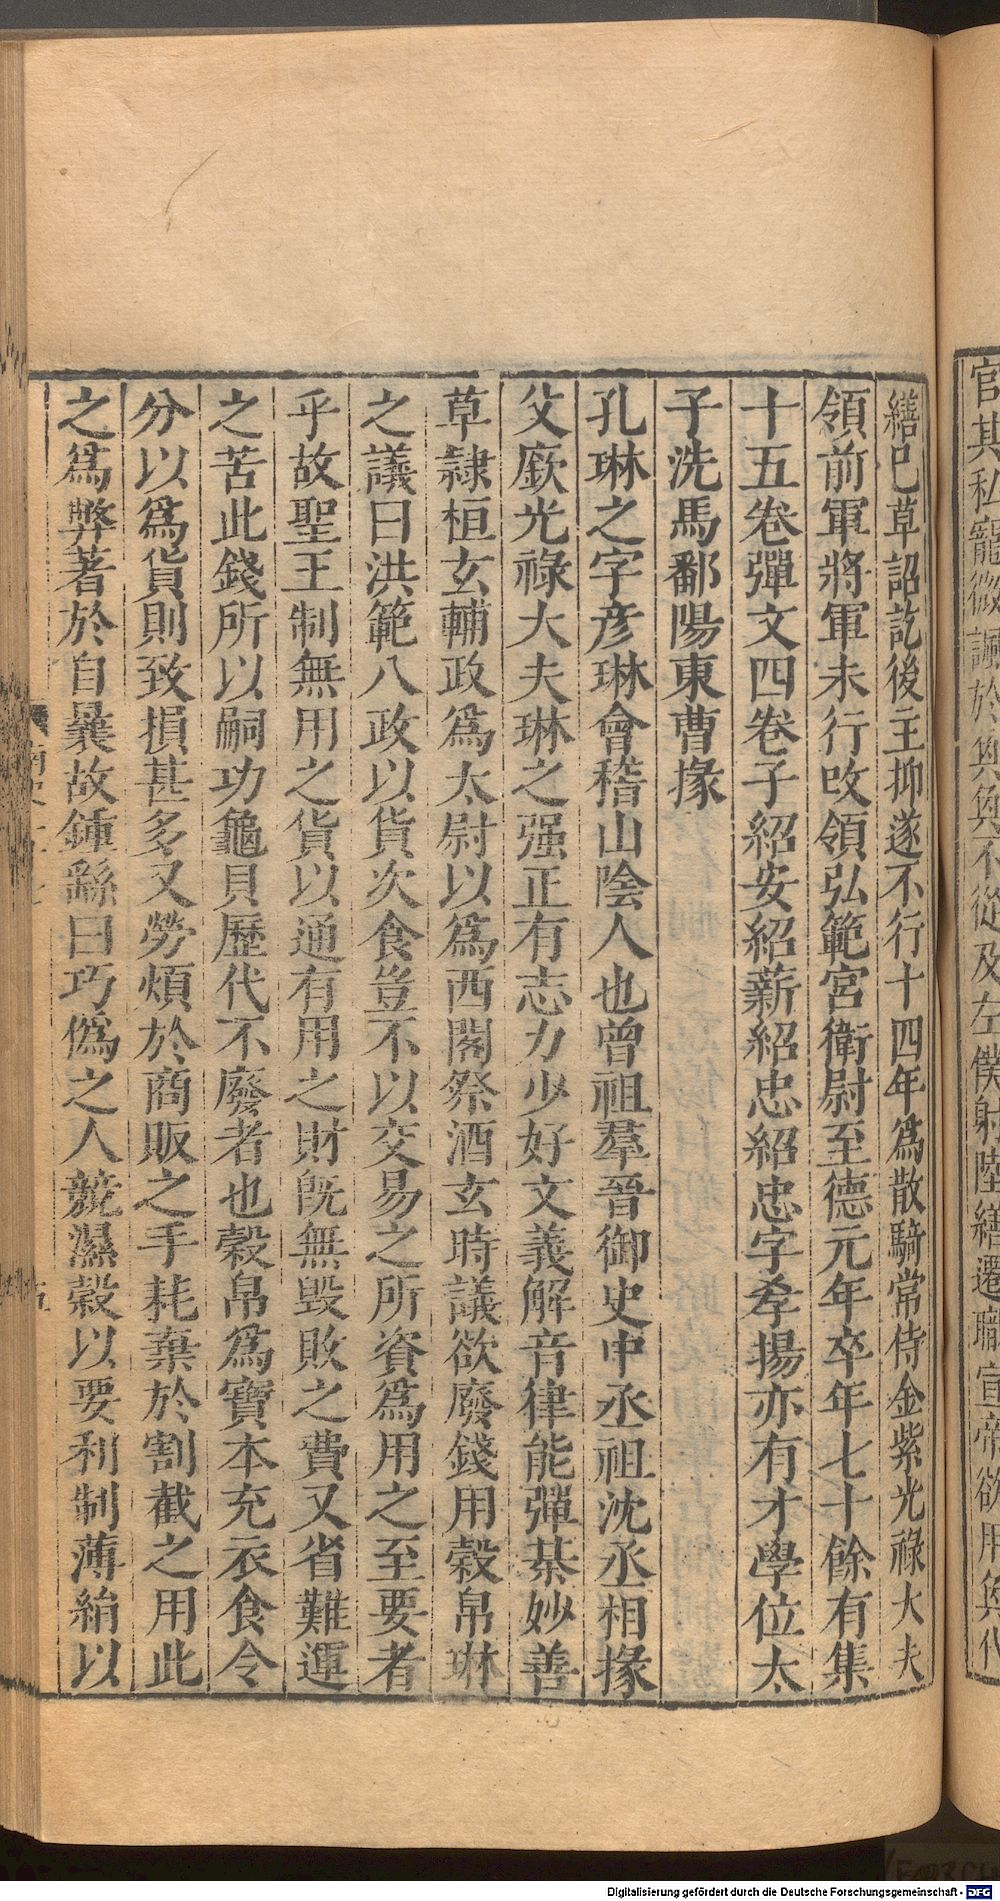 官其私寵微諷於奐奐不從及左僕射陸繕遷職宣帝欲用奐代
繕已草詔訖後主抑遂不行十四年爲散騎常侍金紫光祿大夫
領前軍將軍未行改領弘範宮衛尉至德元年卒年七十餘有集
十五卷彈文四卷子紹安紹薪紹忠紹忠字孝揚亦有才學位太
子洗馬鄱陽東曹掾
孔琳之字彦琳會稽山陰人也曾祖羣晉御史中丞祖沈丞相掾
父廞光祿大夫琳之强正有志力少好文義解音律能彈棊妙善
草隷桓玄輔政爲太尉以爲西閤祭酒玄時議欲廢錢用穀帛琳
之議曰洪範八政以貨次食豈不以交易之所資爲用之至要者
乎故聖王制無用之貨以通有用之財旣無毁敗之費又省難運
之苦此錢所以嗣功龜貝歴代不廢者也穀帛爲寶本充衣食令
分以爲貨則致損甚多又勞煩於商販之手耗棄於割截之用此
之爲弊著於自曩故鍾繇曰巧僞之人競濕穀以要利制薄絹以
Digitalisierung gefördert durch die Deutsche Forschungsgemeinschaft - DFG